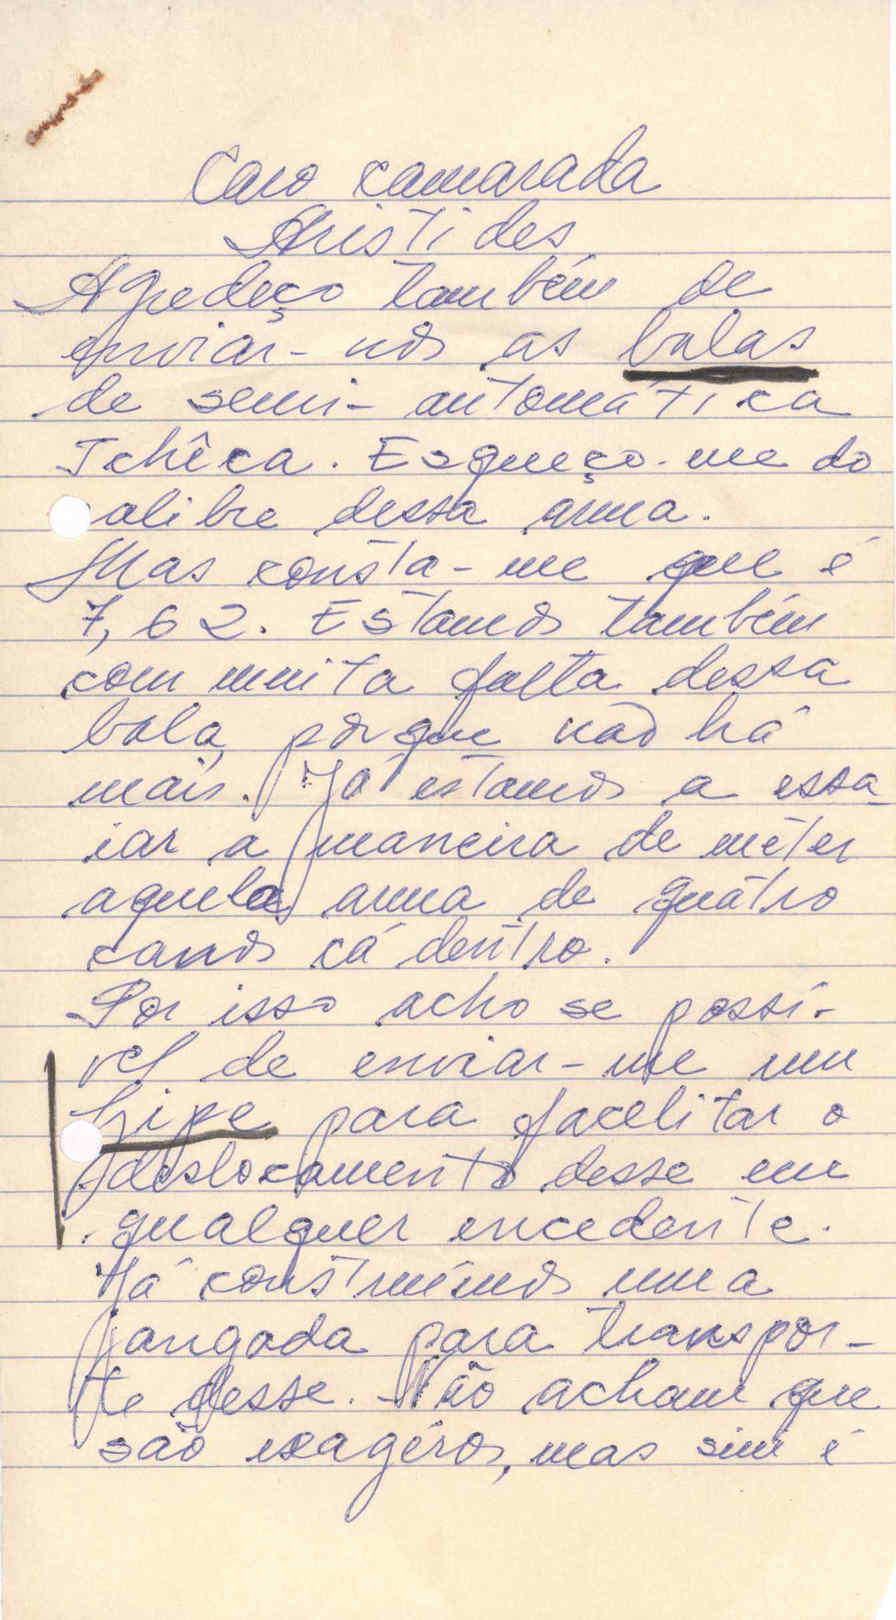 Caro camarada
Aristides
Agredeço também de
enviar-nos as balas
de semi-automática
Tchêca. Esqueço-me do
alibre dessa arma.
Mas consta-me que é
7,62. Estamos também
com muita falta dessa
bala, porque não há
mais. Já estamos a essa-
iar a maneira de mêter
aquela arma de quátro
canos cá dentro.
Por isso acho se possí-
vel de enviar-me um
Gipe para facelitar o
deslocamento desse em
qualquer encedente.
Já construímos uma
jangada para transpor-
te desse. Não acham que
são exagéros, mas sim é